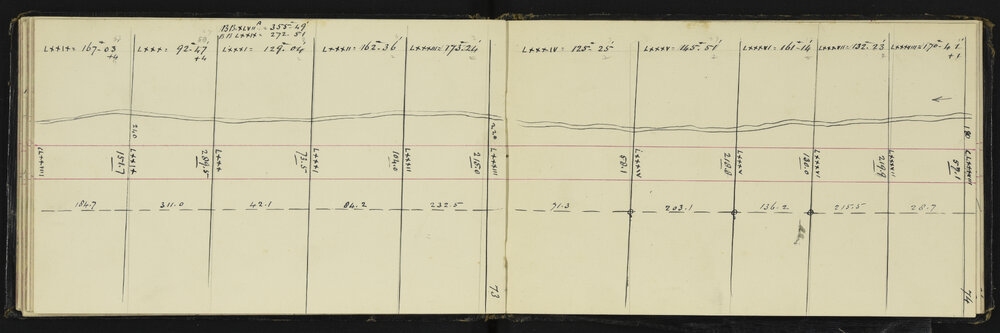 BB XLVII^A = 355-49'
BB LXXIX = 272.51
LXXIX = 167-03
+4
LXXX = 92-47
+4
LXXXI = 129-04
LXXXII = 162-36'
LXXXIII = 173.24'
240
220
LXXIX
151.7
LXXX
284.5
LXXXI
73.5
LXXXII
104.0
LXXXIII
215.0
184.7
311.0
42.1
84.2
232.5
73
LXXXIV = 125-25'
LXXXV = 145-51'
LXXXVI = 161-14'
LXXXVII = 132.23'
LXXXVIII = 170-41'
+1
180
58.1
LXXXV
218.8
LXXXVI
130.0
219.9
57.1
91.3
203.1
136.2
215.5
28.7
74